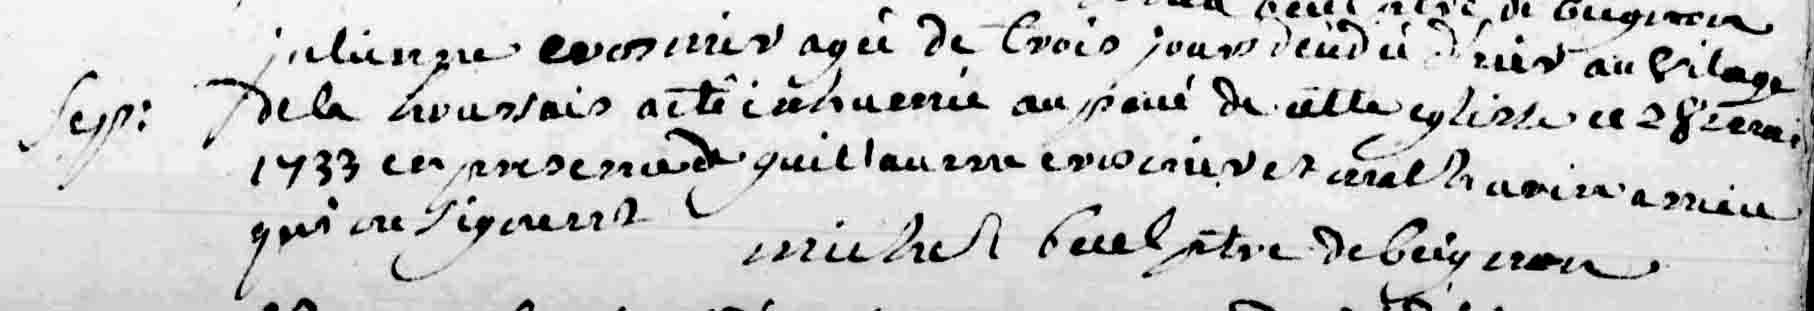 de beignon
julienne crosnier agé de trois jours deĉedé d'hier au vilage
Sep: de la houssais a été inhumée au pavé de cette eglise ce 28e mai
1733 en presence de guillaume crosnier et mathurin
qui ne signent
michel buel ptre de beignon